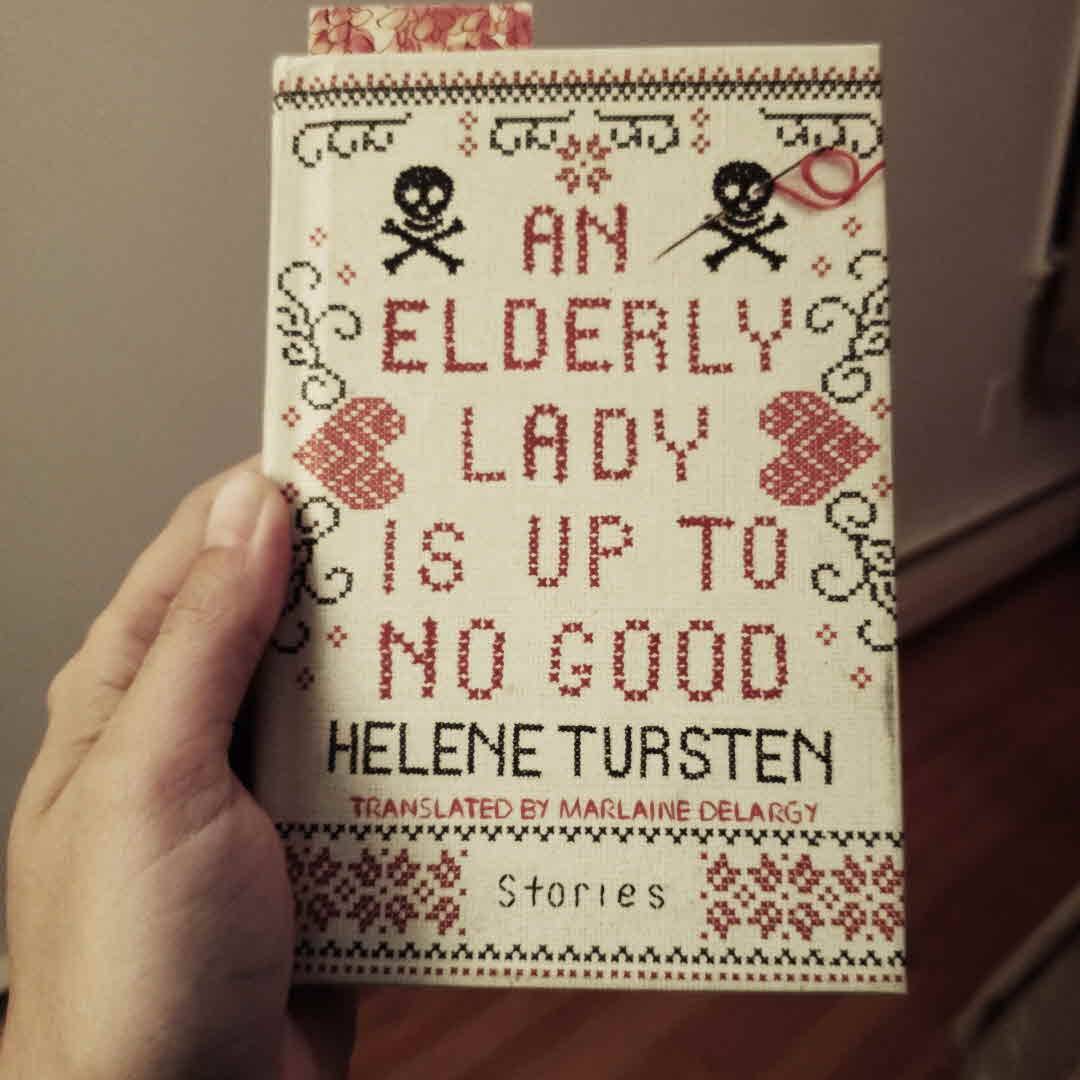 AN
ELDERLY
LADY
IS UP TO
NO GOOD
HELENE TURSTEN
TRANSLATED BY MARLAINE DELARGY
Stories